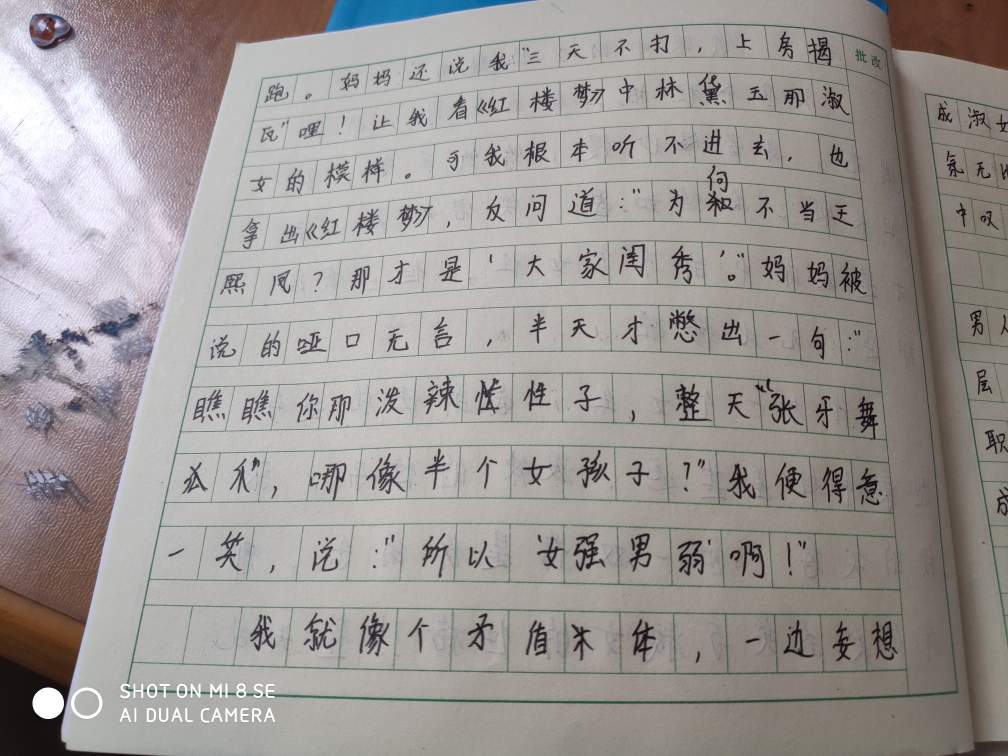 跑。妈妈还说我“三天不打，上房揭
瓦”哩！让我看《红楼梦》中林黛玉那淑
女的模样。可我根本听不进去，也
拿出《红楼梦》，反问道：“为何不当王
熙凤？那才是‘大家闺秀’。”妈妈被
说的哑口无言，半天才憋出一句：“
瞧瞧你那泼辣性子，整天“张牙舞
爪”，哪像半个女孩子？”我便得意
一笑，说：“所以‘女强男弱’啊！”
我就像个矛盾体，一边妄想
批改
成淑女
氛无比
中叹
男
层
职
成
SHOT ON MI 8 SE
AI DUAL CAMERA